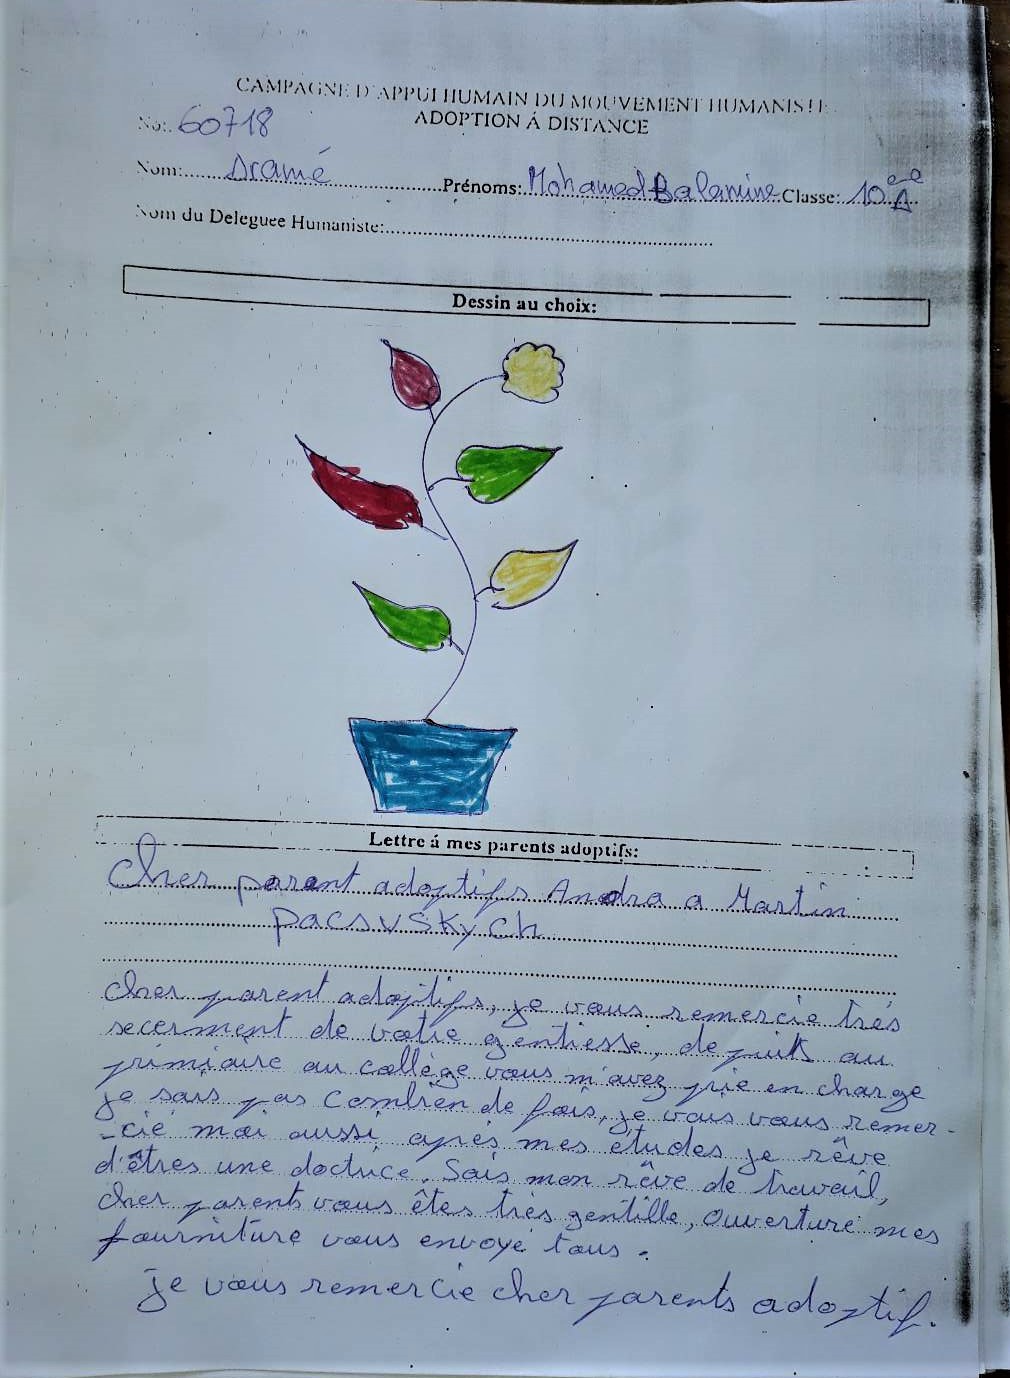 CAMPAGNE D'APPUI HUMAIN DU MOUVEMENT HUMANISTE
ADOPTION Á DISTANCE
No:. 60718
Nom:......Dramé......Prénoms: Mohamed Balamine Classe: 10eᵉ A
Nom du Deleguee Humaniste:
Dessin au choix:
Lettre á mes parents adoptifs:
Cher parent adoptifs Andra a Martin
pacsvskych
cher parent adoptifs, je vous remercie très
secerment de votre gentiesse, depuis au
primiaire au collège vous m'avez prie en charge
je sais pas combien de fois, je vais vous remer-
-cié moi aussi après mes études je rêve
d'êtres une doctrice. Sais mon rêve de travail,
cher parents vous êtes très gentille, ouverture mes
fourniture vous envoye tous.
je vous remercie cher parents adoptif.